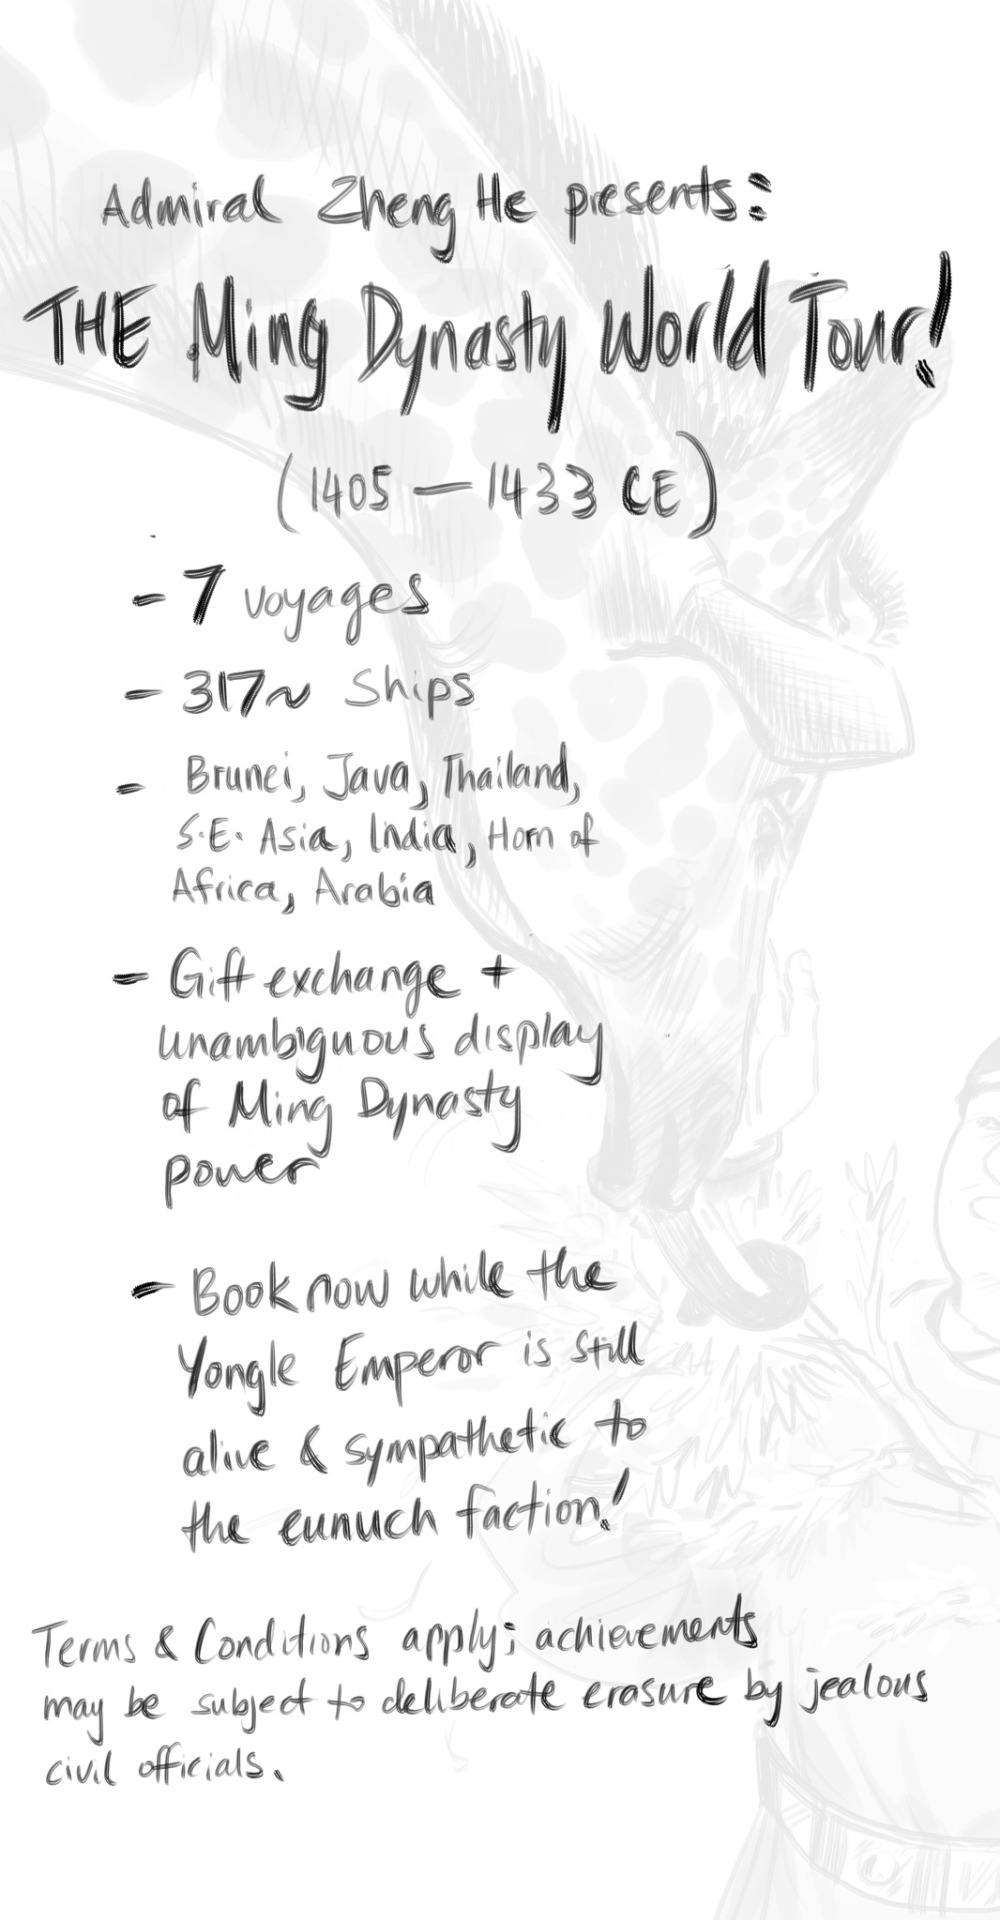 Admiral Zheng He presents:
THE Ming Dynasty World Tour!
(1405 — 1433 CE)
- 7 voyages
- 317~ Ships
- Brunei, Java, Thailand,
S.E. Asia, India, Horn of
Africa, Arabia
- Gift exchange +
unambiguous display
of Ming Dynasty
power
- Book now while the
Yongle Emperor is still
alive & sympathetic to
the eunuch faction!
Terms & Conditions apply; achievements
may be subject to deliberate erasure by jealous
civil officials.